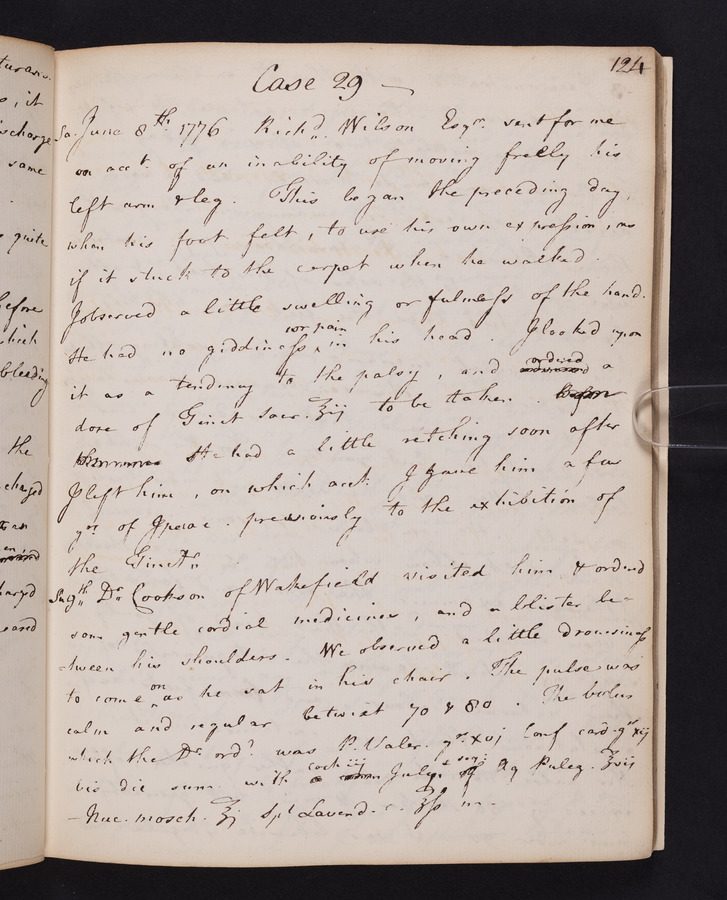 turans.
s, it
ischarge
same
s quite
before
which
bleeding
the
charged
was
124
Case 29 —
Sa. June 8th. 1776 Richd. Wilson Esqr. sent for me
on acct. of an inability of moving freely his
left arm & leg. This began the preceding day,
when his foot felt, to use his own expression, as
if it stuck to the carpet when he walked.
I observed a little swelling or fulness of the hand.
or pain
He had no giddiness ‸ in his head. I looked upon
ordered
it as a tendency to the palsy, and a
dose of Tinct. sacr. ʒij to be taken. Before
He had a little retching soon after
I left him, on which acct. I gave him a few
grs. of Ipecac. previously to the exhibition of
the Tinctr.
Su 9th. Dr. Cookson of Wakefield visited him & ordered
some gentle cordial medicines, and a blister be-
-tween his shoulders. We observed a little drowsiness
on
to come ‸ as he sat in his chair. The pulse was
calm and regular betwixt 70 & 80. The bolus
which the Dr. ordd. was P. Valer. gr. xvj Conf card. gr xij
coch iij
bis die sum. with Julep. Aq Puleg. ℥vij
- Nuc. mosch. ℥j Spt Lavend. c. ℥ſs m.